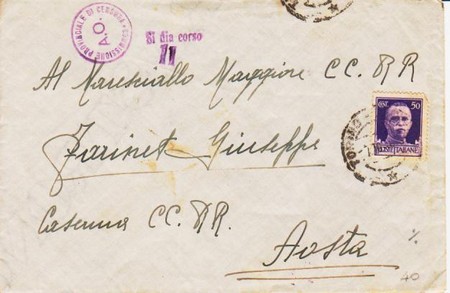 COMMISSIONE PROVINCIALE DI CENSURA
A.O.
Si dia corso
11
Al Maresciallo Maggiore CC. RR
CENT. 50
POSTE ITALIANE
TORINO
Farinet Giuseppe
Caserma CC. RR.
Aosta
40